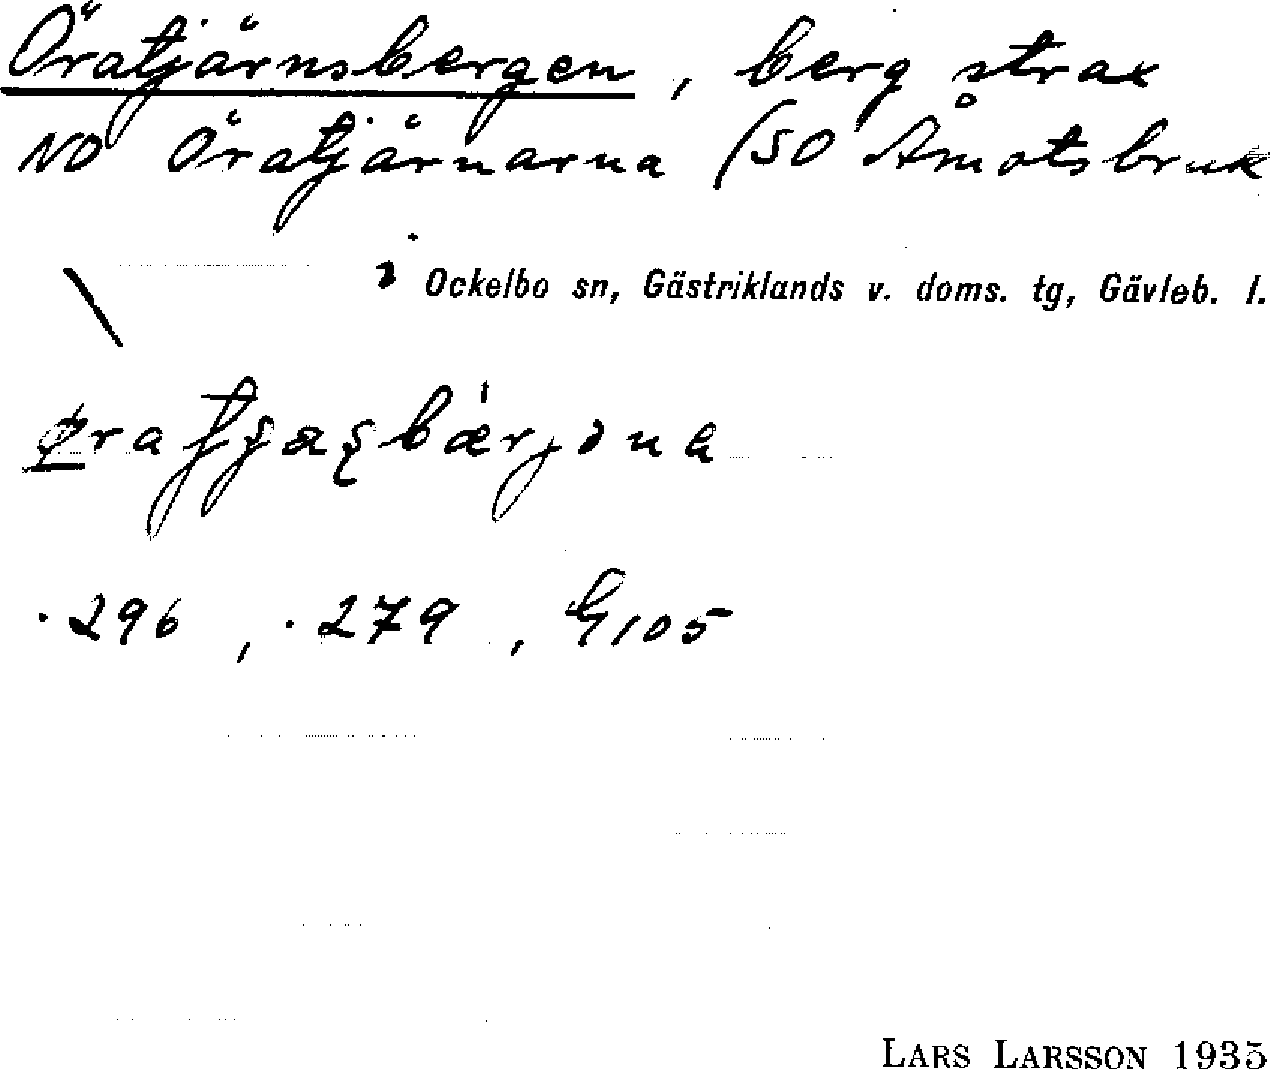 Öratjärnsbergen, berg strax
NO Öratjärnarna (SO Åmotsbruk
Ockelbo sn, Gästriklands v. doms. tg, Gävleb. l.
.296, .279, G105
LARS LARSSON 1935